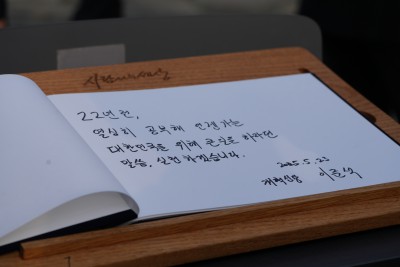 22년전,
열심히 공부해 언젠가는
대한민국을 위해 큰일을 하라던
말씀, 실천하겠습니다.
2025.5.23
개혁신당 이준석